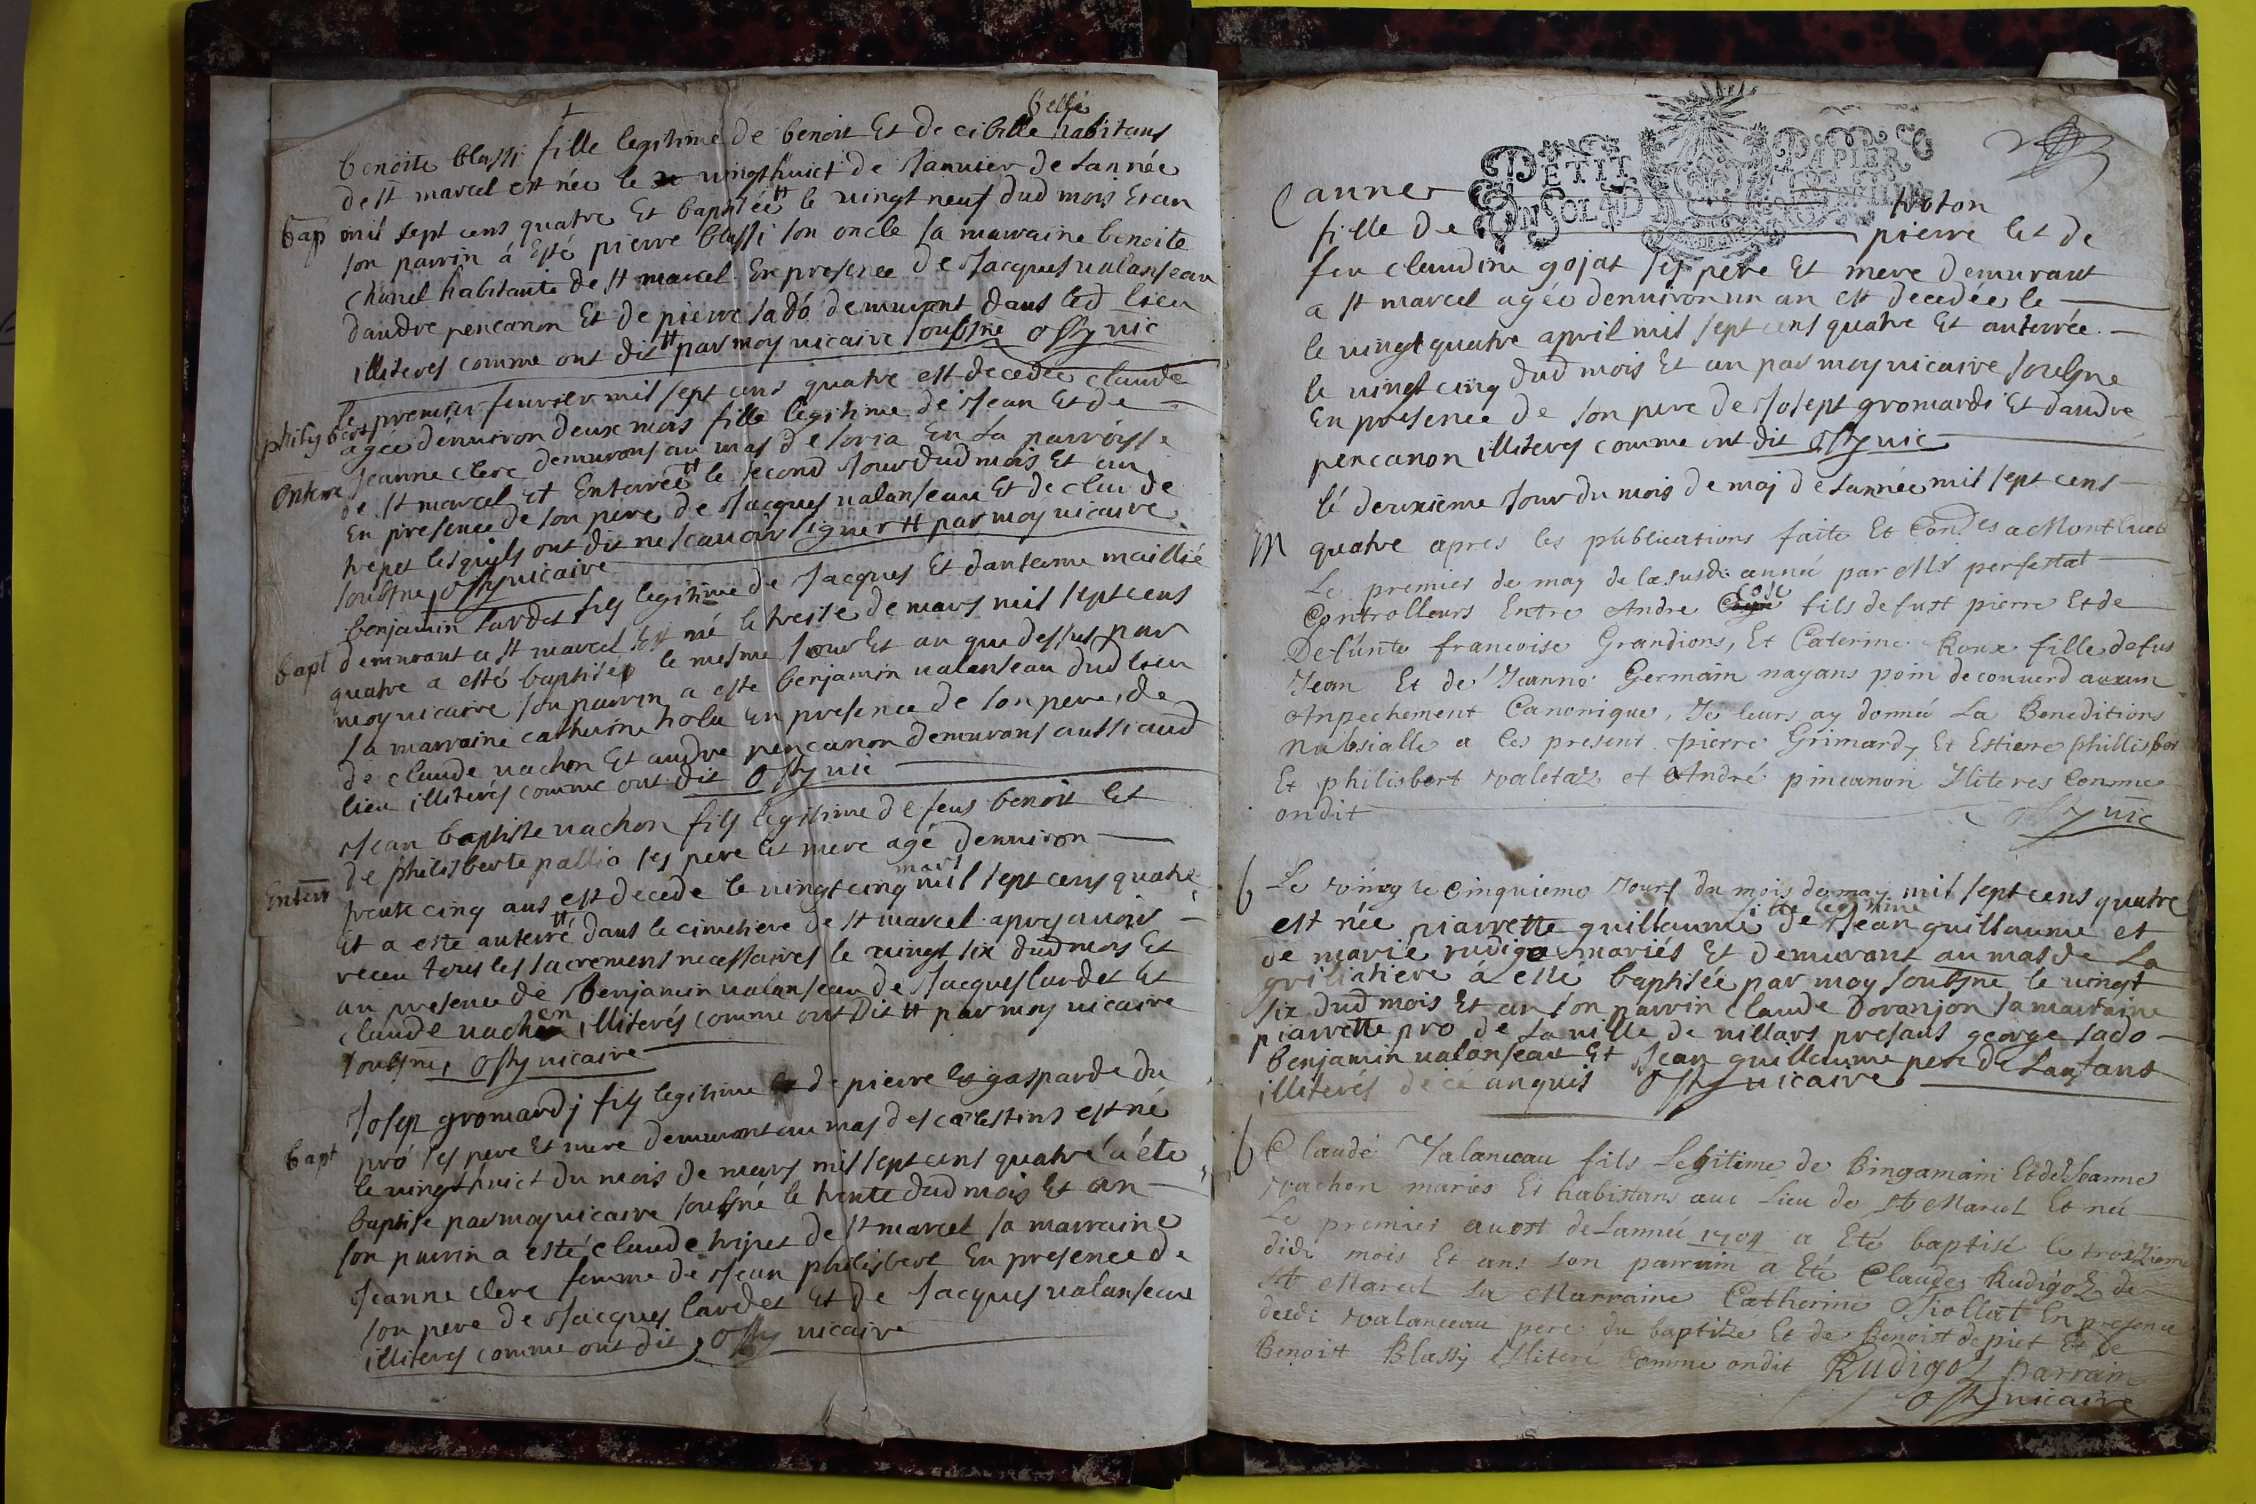 bellé
benoite blassi fille legitime de benoit Et de cibille habitans
de st marcel est née le vingthuict de Januier de Lannée
bap mil sept cens quatre Et baptisée le vingt neuf dud mois Et an
son parrin à Esté pierre blassi son oncle sa marraine benoite
chanel habitante de st marcel En presence de Jacques ualanseau
dandre pencanon Et de pierre sado demeurant dans led lieu
illiterés comme ont dit par moy uicaire soubsne osty uic
le premier feurier mil sept cens quatre est decedée claude
philybert agée dénuiron deux mois fille legitime de Jean Et de
Jeanne clerc demurans au mas de soria En La parroisse
Enterre de st marcel Et Enterrée le second Jour dud mois Et an
En presence de son pere de Jacques ualanseau Et de claude
trepet lesquels ont dit ne scauoir signer par moy uicaire
soubsne osty uicaire
benjamin Lardet fils legitime de Jacques Et dantoine maillié
bapt demurant a st marcel Est né le treise de mars mil sept cens
quatre a esté baptisé le mesme Jour Et an que dessus par
moy uicaire son parrin a esté benjamin ualanseau dud lieu
sa marraine catherine nola En presence de son pere, de
de claude uachon Et andre pencanon demurans aussi aud
lieu illiterés comme ont dit osty uic
Jean baptiste uachon fils legitime de feus benoit Et
de philisberte pallio ses pere Et mere agé denuiron
mars
Enterr trente cinq ans est decede le uingt cinq mil sept cens quatre
Et a esté anterré dans le cimetiere de st marcel apres auoir
receu tous les sacremens necessaires le uingt six dud mois Et
an presence de Benjamin ualanseau de Jacques lardet Et
claude uachon illiterés comme ont Dit par moy uicaire
soubsne, osty uicaire
Josep gromardj fils legitime de pierre Et gasparde du
pró ses pere Et mere demurant au mas des celestins est né
bapt le uingthuict du mois de mars mil sept cens quatre a été
baptise par moy uicaire soubsné le trente dud mois Et an
son parrin a esté claude tripet de st marcel sa marraine
Jeanne clerc femme de Jean philisbert En presence de
son pere de Jacques lardet Et de Jacques ualanseau
illiterés comme ont dit, osty uicaire
PETIT PAPIER
UN SOL
Canner troton
fille De pierre Et de
feu claudine gojat ses pere Et mere demurant
a st marcel agée denuiron un an est decedée le
le uingt quatre april mil sept cens quatre Et anterrée
le uingt cinq dud mois Et an par moy uicaire soubsne
En presence de son pere de Josept gromardi Et dandre
pencanon illiterés comme ont dit osty uic
lé deuxième Jour du mois de maj de Lannée mil sept cens
m quatre apres les publications faite Et a Montluel
Le premier de may de la susd. année par Mr perfestal
Controlleurs Entre Andre Cose fils de fust pierre Et de
Defunte francoise Grandions, Et Caterine Roux fille defus
Jean Et de Jeanne Germain nayans poin decouuerd aucun
Anpechement Canonique, Je leurs ay donné La Beneditions
Nubsialle a les present pierre Grimardy Et Estienne philisber
Et philisbert valetaz et André pincanon Iliteres Comme
ondit osty uic
b Le vingt e Cinquieme Jours du mois de may mil sept cens quatre
est née piarrette guillaume fille legitime de Jean guillaume et
de marie rudigo mariés Et demurant au mas de La
griliatiere á esté baptisée par moy soubsne le uingt
six dud mois Et an son parrin claude Doranjon sa marraine
piarrette pro de La uille de uillars presans george sado
benjamin ualanseau Et Jean guillaume pere de Lanfans
illiterés de ce anquis osty uicaire
b Claude Valanceau fils Legitime de Bingamain Et de Jeanne
vachon mariés Et habistans aue Lieu de St Marcel Et né
Le premier auost de Lanneé 1704 a Eté baptisé le troizieme
didi mois Et ans son parrain a Eté Claude Rudigoz de
St Marcel La Marraine Catherine Tiollat En presence
dudi valanceau pere du baptize Et de Benoist depiet Et de
Benoist Blassy Illiteré Comme ondit Rudigoz parrain
osty uicaire